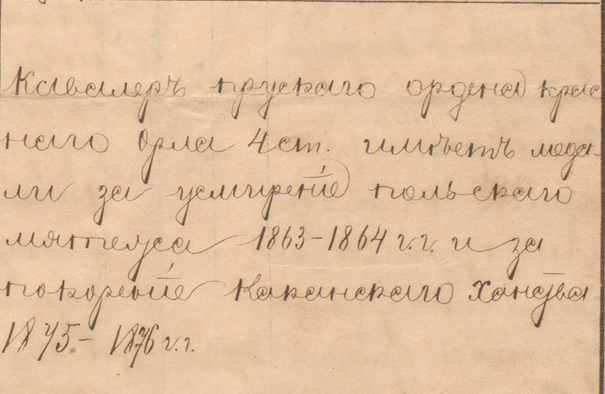 Кавалеръ прускаго ордена крас
наго Орла 4 ст. имѣетъ меда-
ли за усмиреніе польскаго
мятежа 1863-1864 г.г. и за
покореніе Каканскаго Ханства
1875 - 1876 г.г.